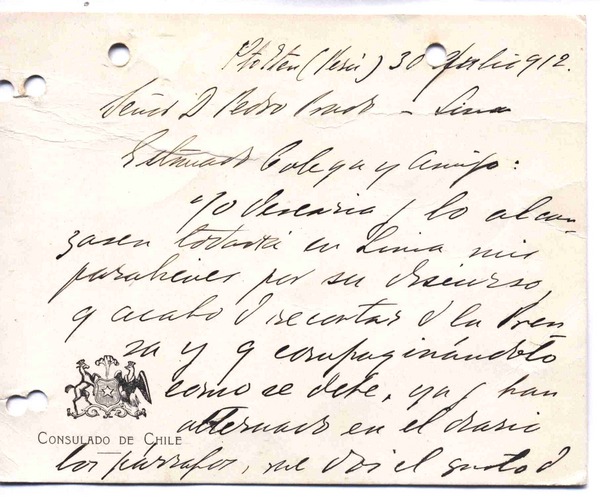 Pto Eten (Perú) 30 Julio 912.
Señor D Pedro Prado - Lima
Estimado Colega y amigo:
Yo desearia q lo alcan-
zasen todavía en Lima mis
parabienes por su discurso,
q acabo d recortar d la Pren
sa y q compaginándolo
como se debe, ya q han
alternado en el diario
los párrafos, me doi el gusto d
CONSULADO DE CHILE